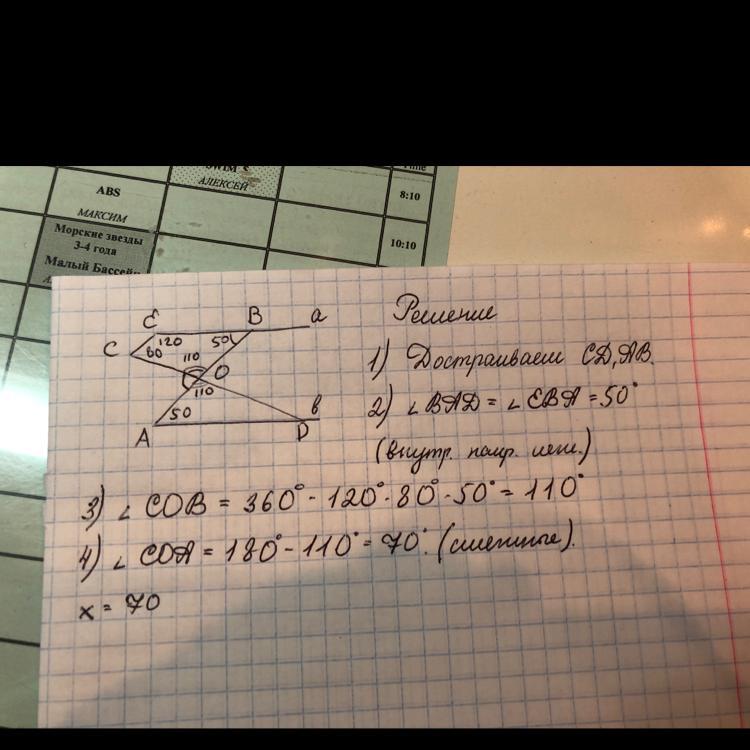 ABS
МАКСИМ
АЛЕКСЕЙ
8:10
Морские звезды
3-4 года
Малый Бассейн
10:10
E
B
a
C
120
50
80
110
O
110
50
A
D
b
Решение
1) Достраиваем CD, AB.
2) ∠ BAD = ∠ EBA = 50°
(внутр. накр. леж.)
3) ∠ COB = 360° - 120° - 80° - 50° = 110°
4) ∠ COA = 180° - 110° = 70°. (смежные).
x = 70